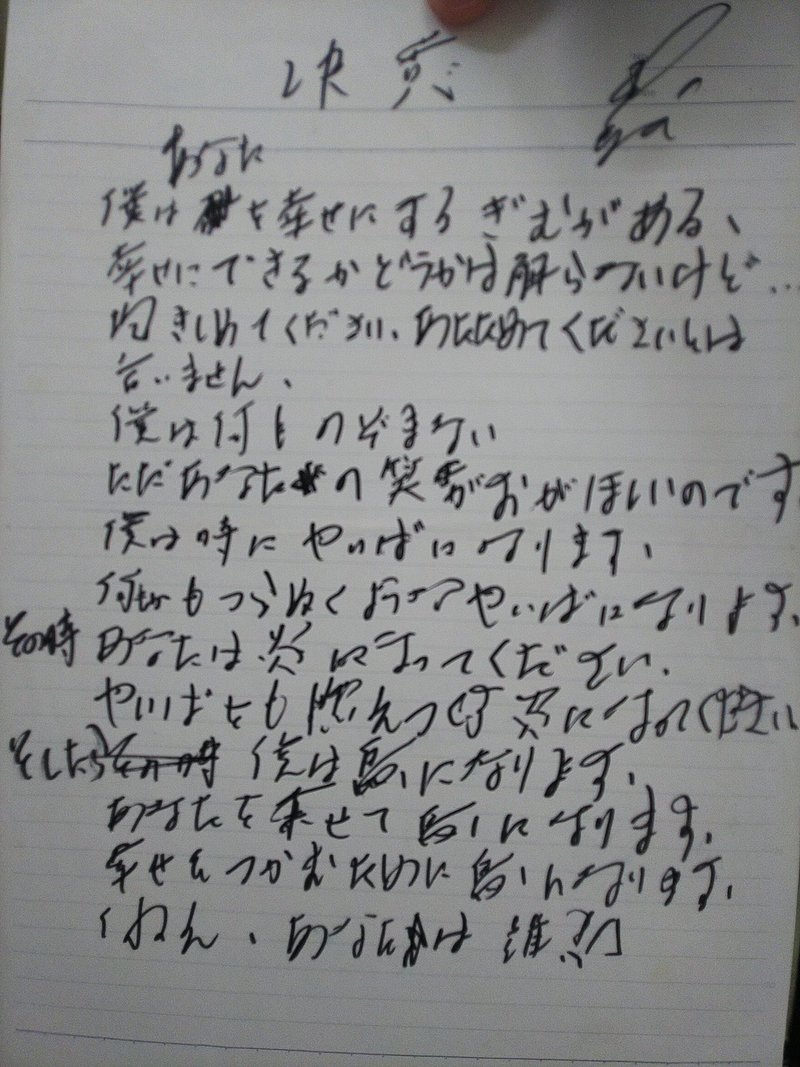 決意
あなた
僕は を幸せにするぎむがある、
幸せにできるかどうかは解らないけど…
抱きしめてください、あたためてくださいとは
言いません、
僕は何ものぞまない
ただあなたの笑がおがほしいのです
僕は時にやいばになります、
何もかもつらぬくようなやいばになります、
その時 あなたは炎になってください、
やいばをも燃えつくす炎になってください
そしたら その時 僕は鳥になります、
あなたを乗せて鳥になります、
幸せをつかむために鳥になります、
くねん、あなたは誰?